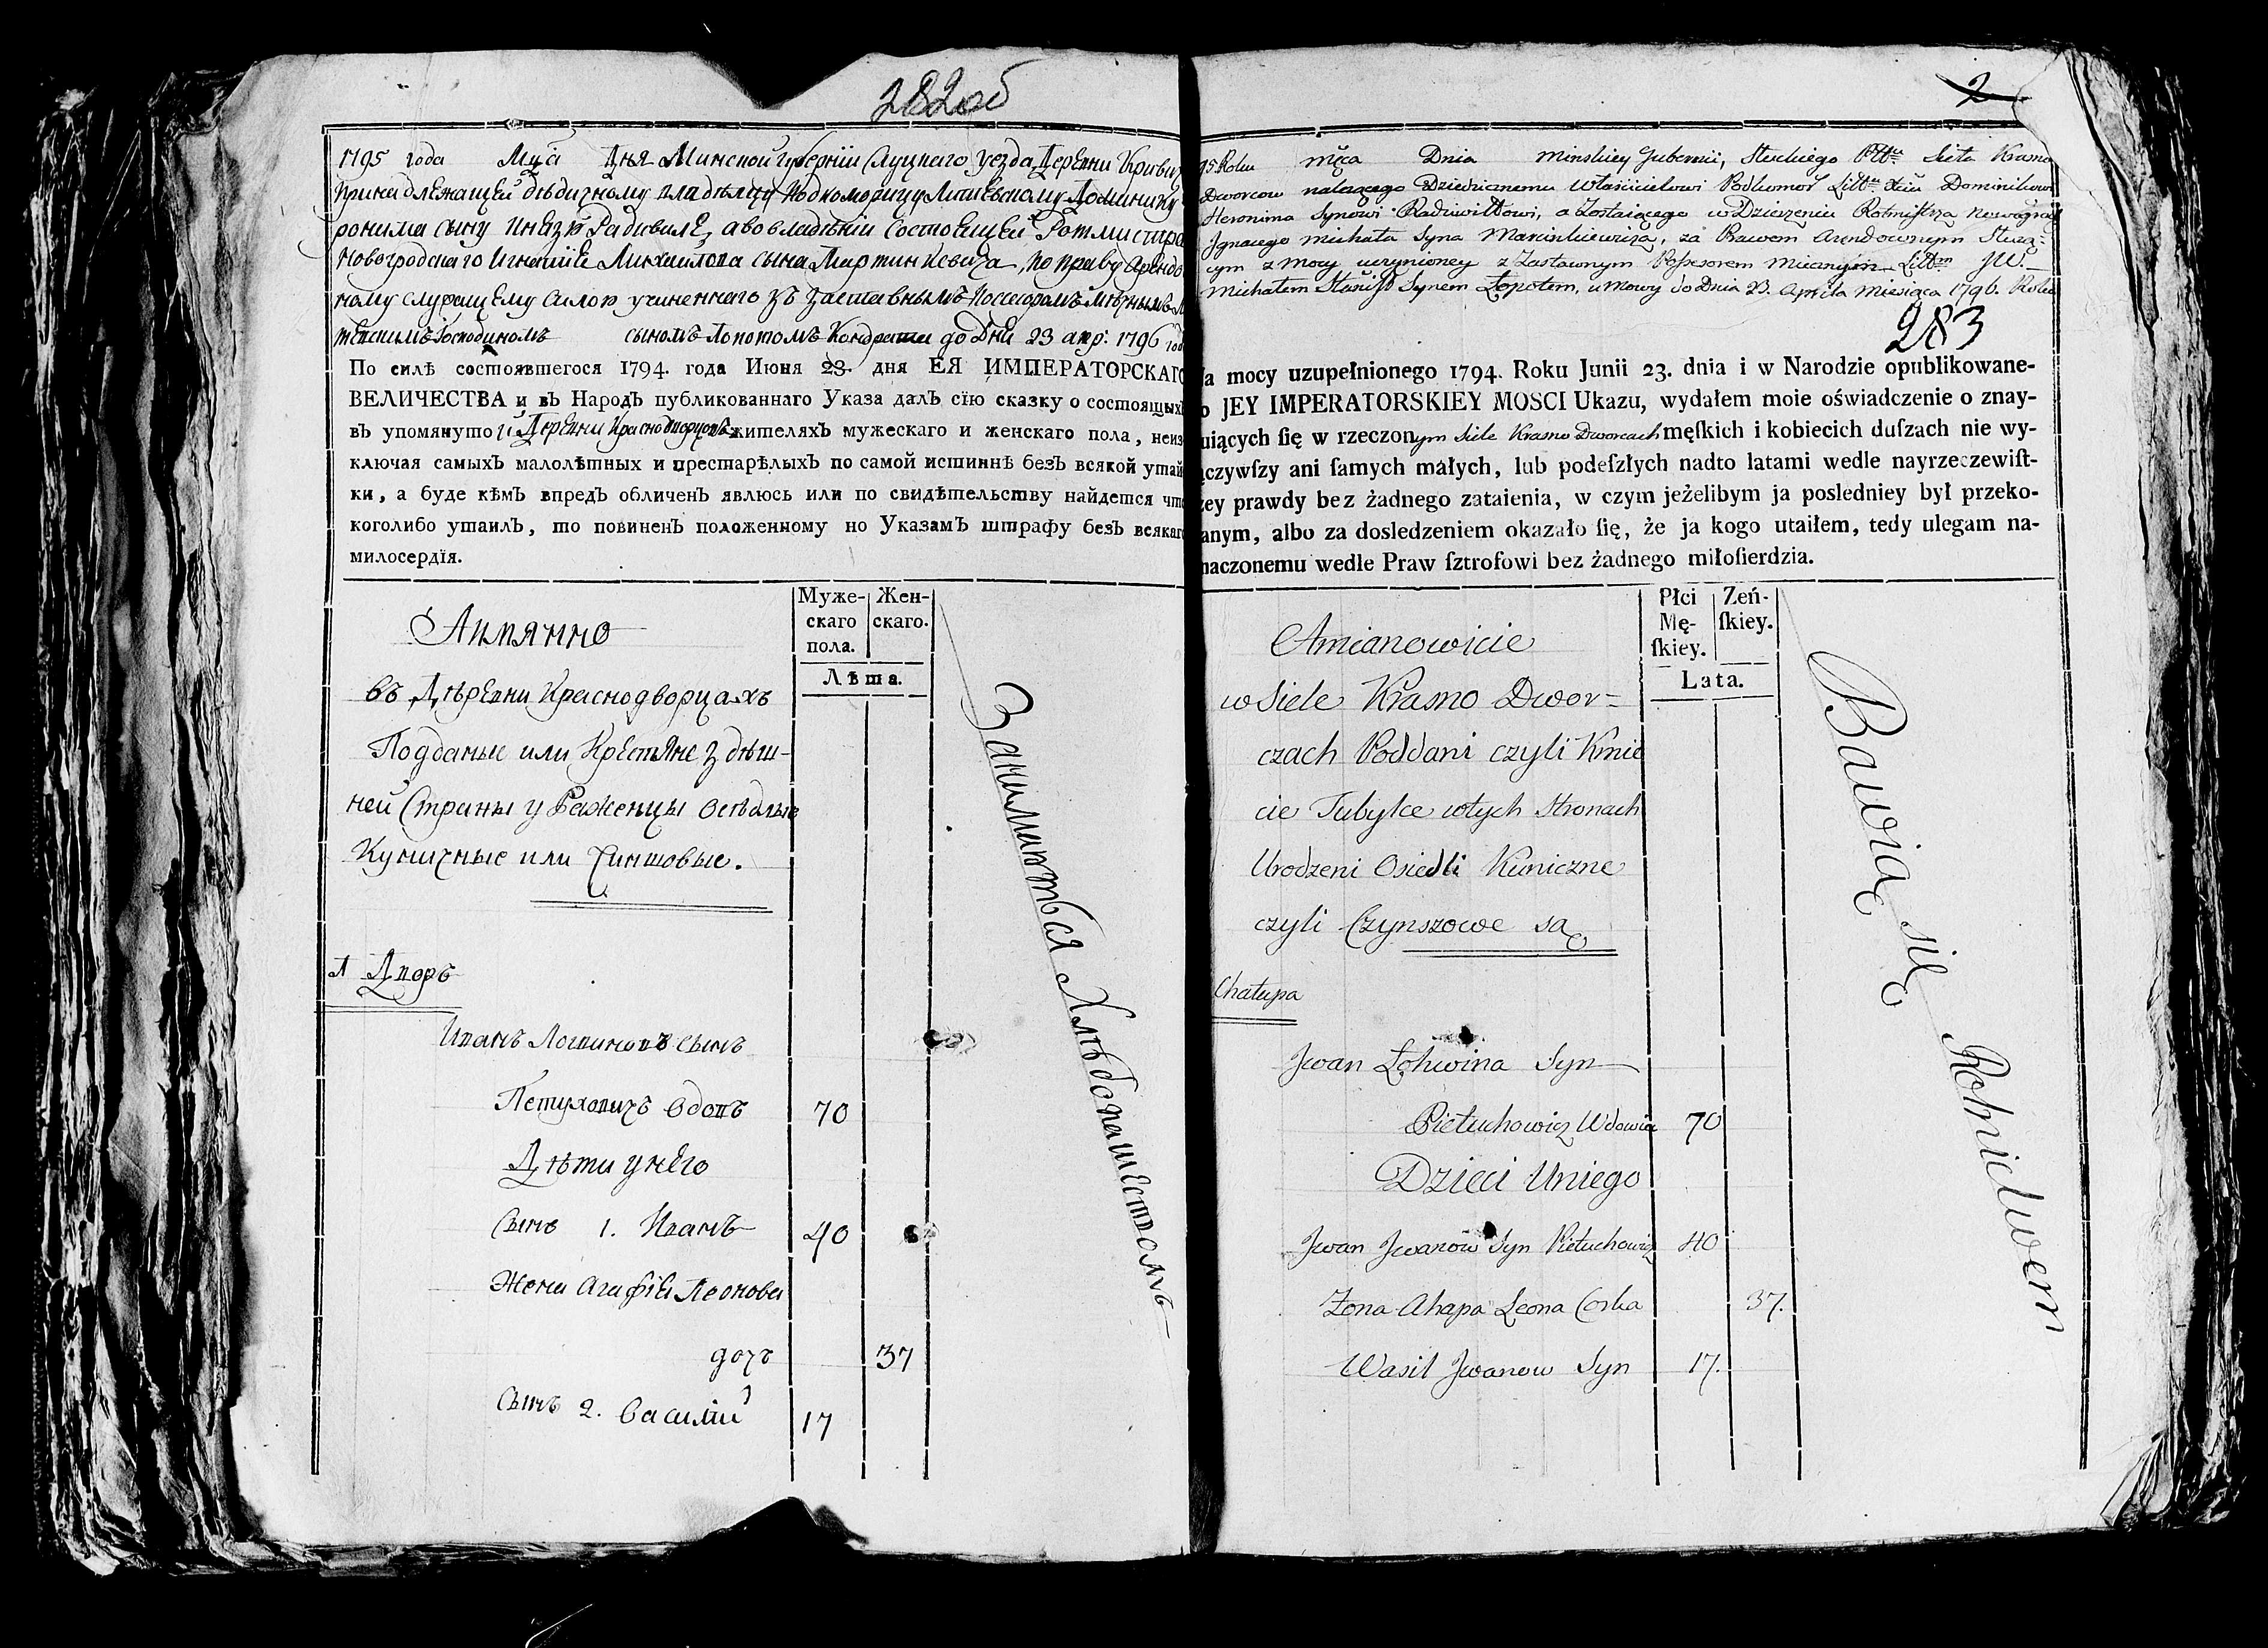 282об
1795 года Мца Дня Минской губернїи Слуцкаго уезда Деревни
принадлежащей дѣдичному владѣльцу Подкоморицу Литевскому Доминику
ронима сыну Князю Радивиле, а во владѣнїи состоящей Ротмистра
Новогродскаго Игнатїя Михайлова сына Мартинкевича, по праву Арендо
ному служащему силою учиненнаго зъ заставнымъ Посессоромъ
Господиномъ сыномъ Лопотомъ до Дня 23 апр: 1796 год
По силѣ состоявшегося 1794. года Июня 23. дня ЕЯ ИМПЕРАТОРСКАГО
ВЕЛИЧЕСТВА и въ Народъ публикованнаго Указа далъ сїю сказку о состоящихъ
въ упомянутой Деревни Краснодворцовъ жителяхъ мужескаго и женскаго пола, неиз
ключая самыхъ малолѣтныхъ и престарѣлыхъ по самой истиннѣ безъ всякой утай
ки, а буде кѣмъ впредъ обличенъ явлюсь или по свидѣтельству найдется что
коголибо утаилъ, то повиненъ положенному по Указамъ штрафу безъ всякаго
милосердїя.
Муже-скаго пола. Жен-скаго.
Лѣта.
Аимянно
въ Деревни Краснодворцахъ
Подданые или Крестяне здѣш-
ней Страны уроженцы оседлые
Куничные или Чиншовые.
1 Дворъ
Иванъ Логвиновъ сынъ
Петуховичъ вдовъ 70
Дѣти у него
Сынъ 1. Иванъ 40
Жена Агафїя Леонова
дочь 37
Сынъ 2. Василїй 17
Занимаются Хлѣбопашествомъ
2
95 Roku mca Dnia Minskiey Gubernii, Sluckiego Pttu Sieła Krasno
Dworcow należącego Dziedzicznemu Włascicielowi Podkomor Litt Xciu Dominikowi
Heronima Synowi Radziwiłłowi, a Zostaiącego w Dzierżeniu Rotmistrza Nowogrodz
Ignacego Michała Syna Marcinkiewicza, za Prawem Arendownym Służą=
cym z Mocy uczynioney z Zastawnym Possesorem Litt JW.
Michałem Synem Łopotem, umowy do Dnia 23. Aprila Miesiąca 1796. Roku
283
a mocy uzupełnionego 1794. Roku Junii 23. dnia i w Narodzie opublikowane-
o JEY IMPERATORSKIEY MOSCI Ukazu, wydałem moie oświadczenie o znay-
uiących ſię w rzeczonym Siele Krasno Dworcach męſkich i kobiecich duſzach nie wy-
ączywſzy ani ſamych małych, lub podeſzłych nadto latami wedle nayrzeczewiſt-
zey prawdy bez żadnego zataienia, w czym jeżelibym ja posledniey był przeko-
anym, albo za dosledzeniem okazało ſię, że ja kogo utaiłem, tedy ulegam na-
naczonemu wedle Praw ſztrofowi bez żadnego miłoſierdzia.
Płci Mę-ſkiey. Zeń-ſkiey.
Lata.
Amianowicie
w Siele Krasno Dwor=
czach Poddani czyli Kmie
cie Tubylce w tych Stronach
Urodzeni Osiedli Kuniczne
czyli Czynszowe są
Chałupa
Jwan Łohwina Syn
Pietuchowicz Wdowiec 70
Dzieci Uniego
Jwan Jwanow Syn Pietuchowicz 40
Żona Ahapa Leona Corka 37.
Wasil Jwanow Syn 17.
Bawią się Rolnictwem